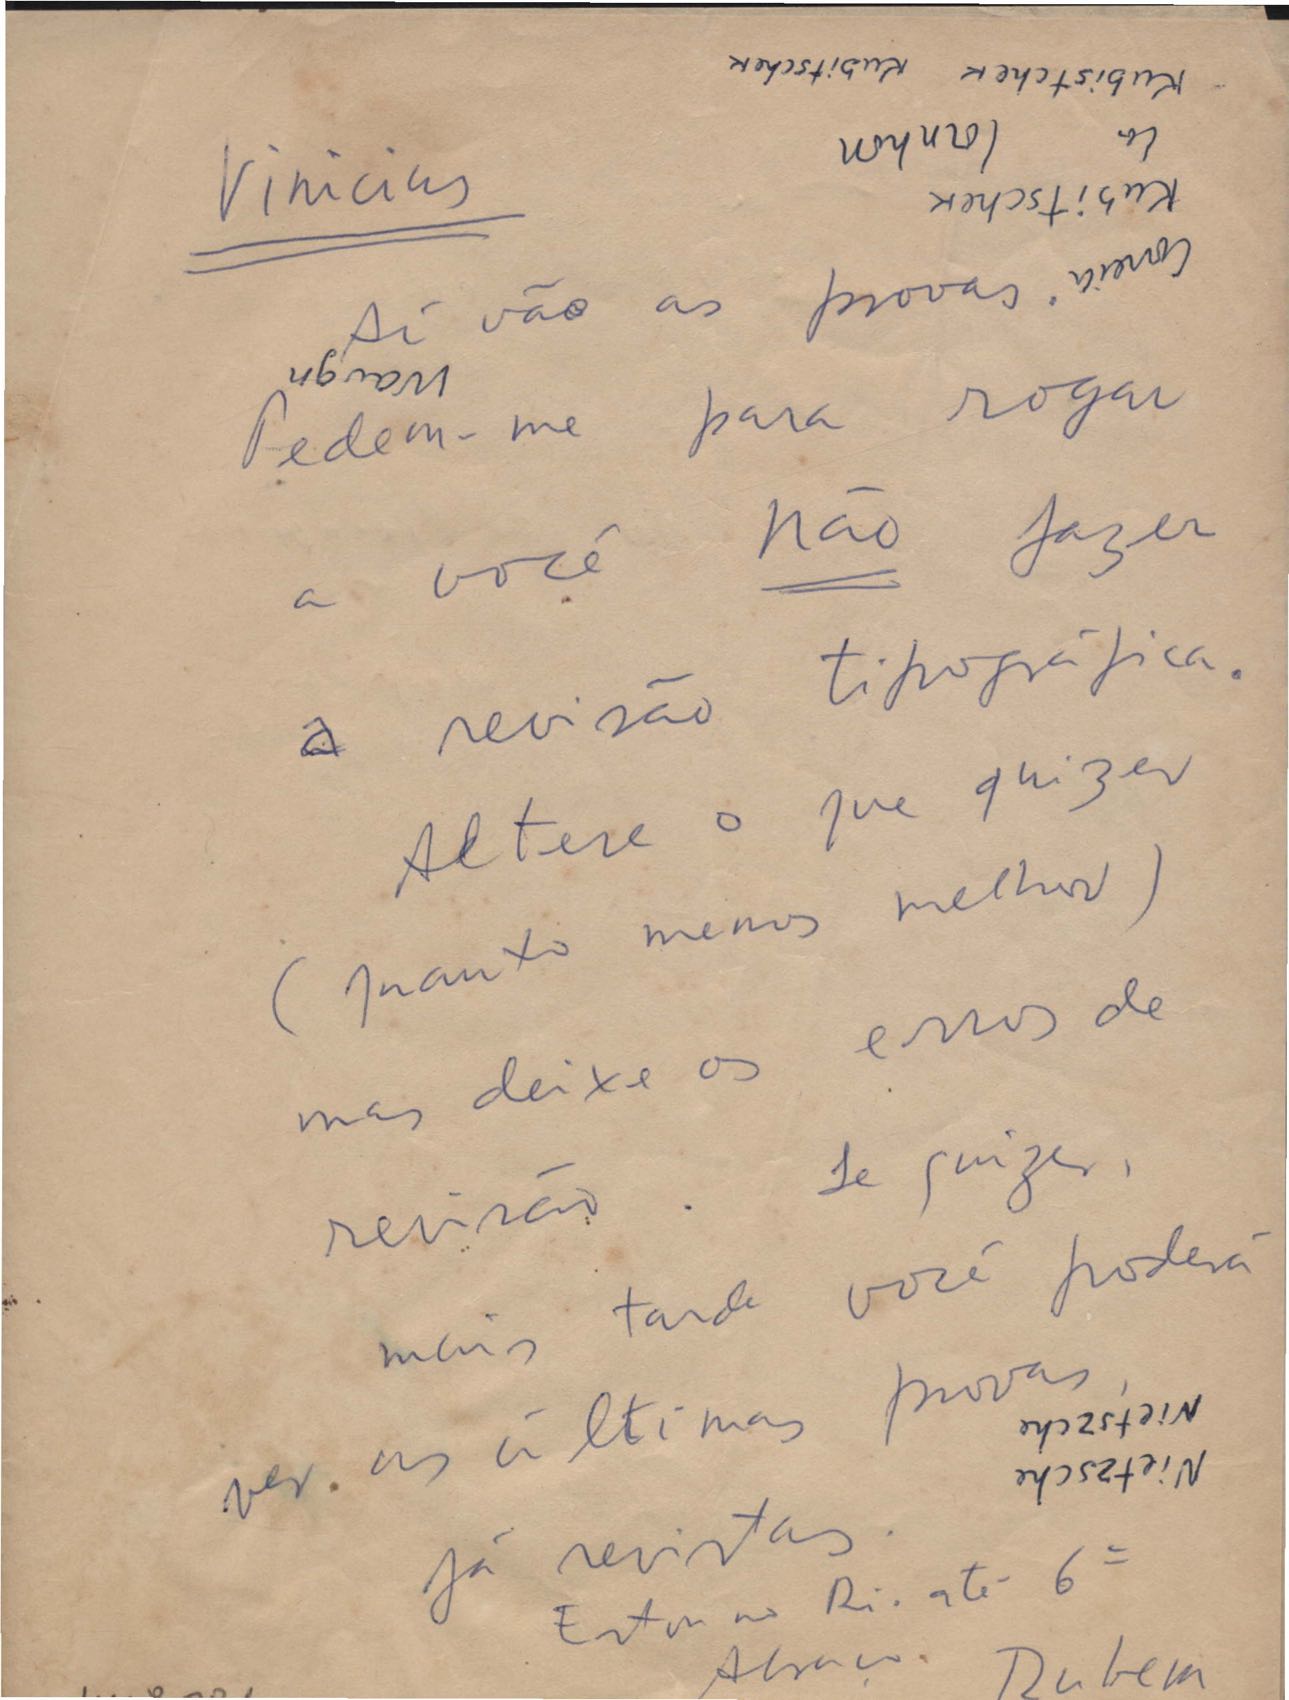 Kubistchek Kubitschek
Kubitschek
Vinicius
Aí vão as provas.
Pedem-me para rogar
a você não fazer
a revisão tipográfica.
Altere o que quizer
(quanto menos melhor)
mas deixe os erros de
revisão. Se quizer,
mais tarde você poderá
ver as últimas provas,
Nietszche
Nietzsche
já revistas.
Estou no Rio até 6ª
Abraço. Rubem